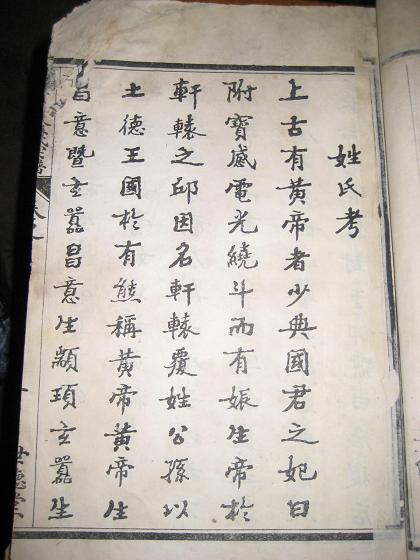 姓氏考
上古有黄帝者少典國君之妃曰
附寳感電光繞斗而有娠生帝於
軒轅之邱因名軒轅覆姓公孫以
土德王國於有熊稱黄帝黄帝生
昌意暨玄囂昌意生顓頊玄囂生
世德堂